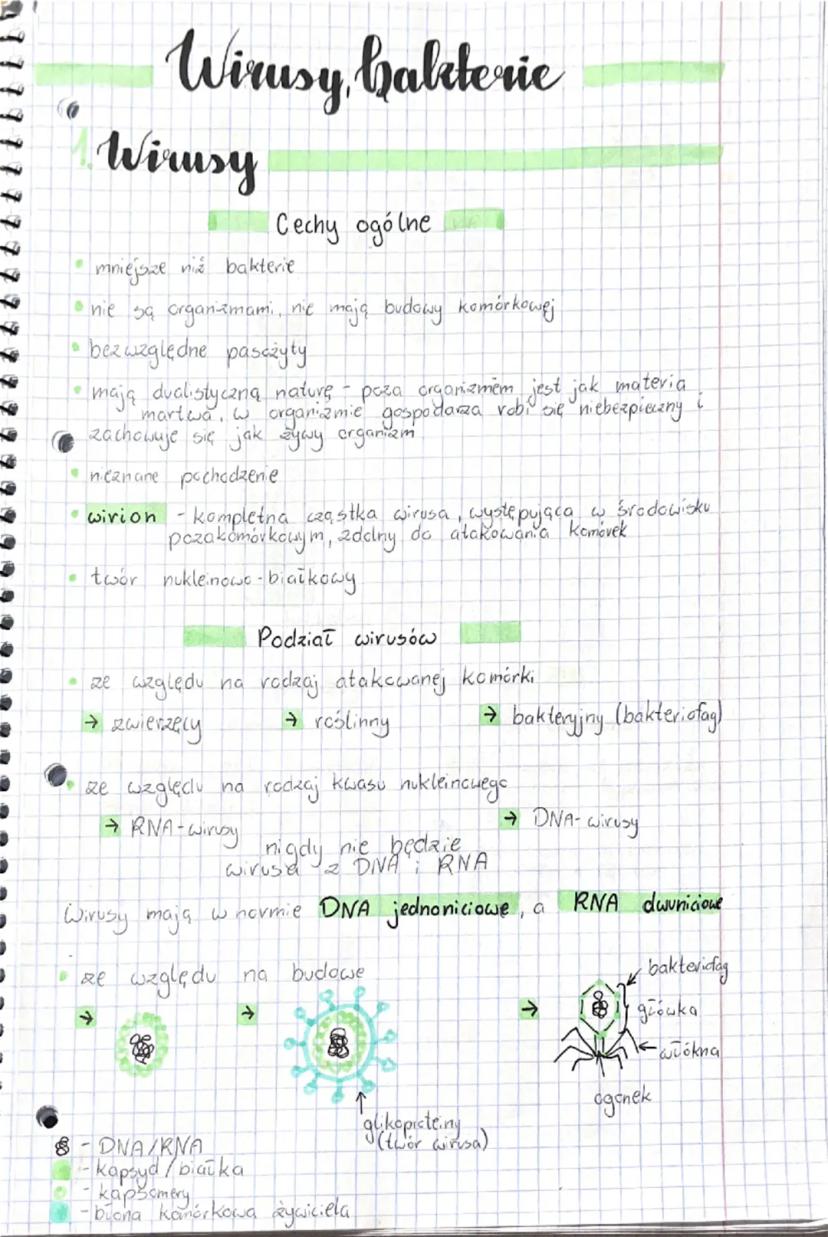 Wirusy, bakterie
1. Wirusy
Cechy ogólne
• mniejsze niż bakterie
• nie są organizmami, nie mają budowy komórkowej
• bezwzględne pasożyty
• mają dualistyczną naturę - poza organizmem jest jak materia
martwa, w organizmie gospodarza robi się niebezpieczny i
zachowuje się jak żywy organizm
• nieznane pochodzenie
• wirion - kompletna cząstka wirusa, występująca w środowisku
pozakomórkowym, zdolny do atakowania komórek
• twór nukleinowo-białkowy
Podział wirusów
• ze względu na rodzaj atakowanej komórki
→ zwierzęcy → roślinny → bakteryjny (bakteriofag)
• ze względu na rodzaj kwasu nukleinowego
→ RNA-wirusy → DNA-wirusy
nigdy nie będzie
wirusa z DNA i RNA
Wirusy mają w normie DNA jednoniciowe, a RNA dwuniciowe
• ze względu na budowę
→ → →
bakteriofag
główka
włókna
ogonek
glikoproteiny
(twór wirusa)
- DNA/RNA
- kapsyd/białka
- kapsomery
- błona komórkowa żywiciela